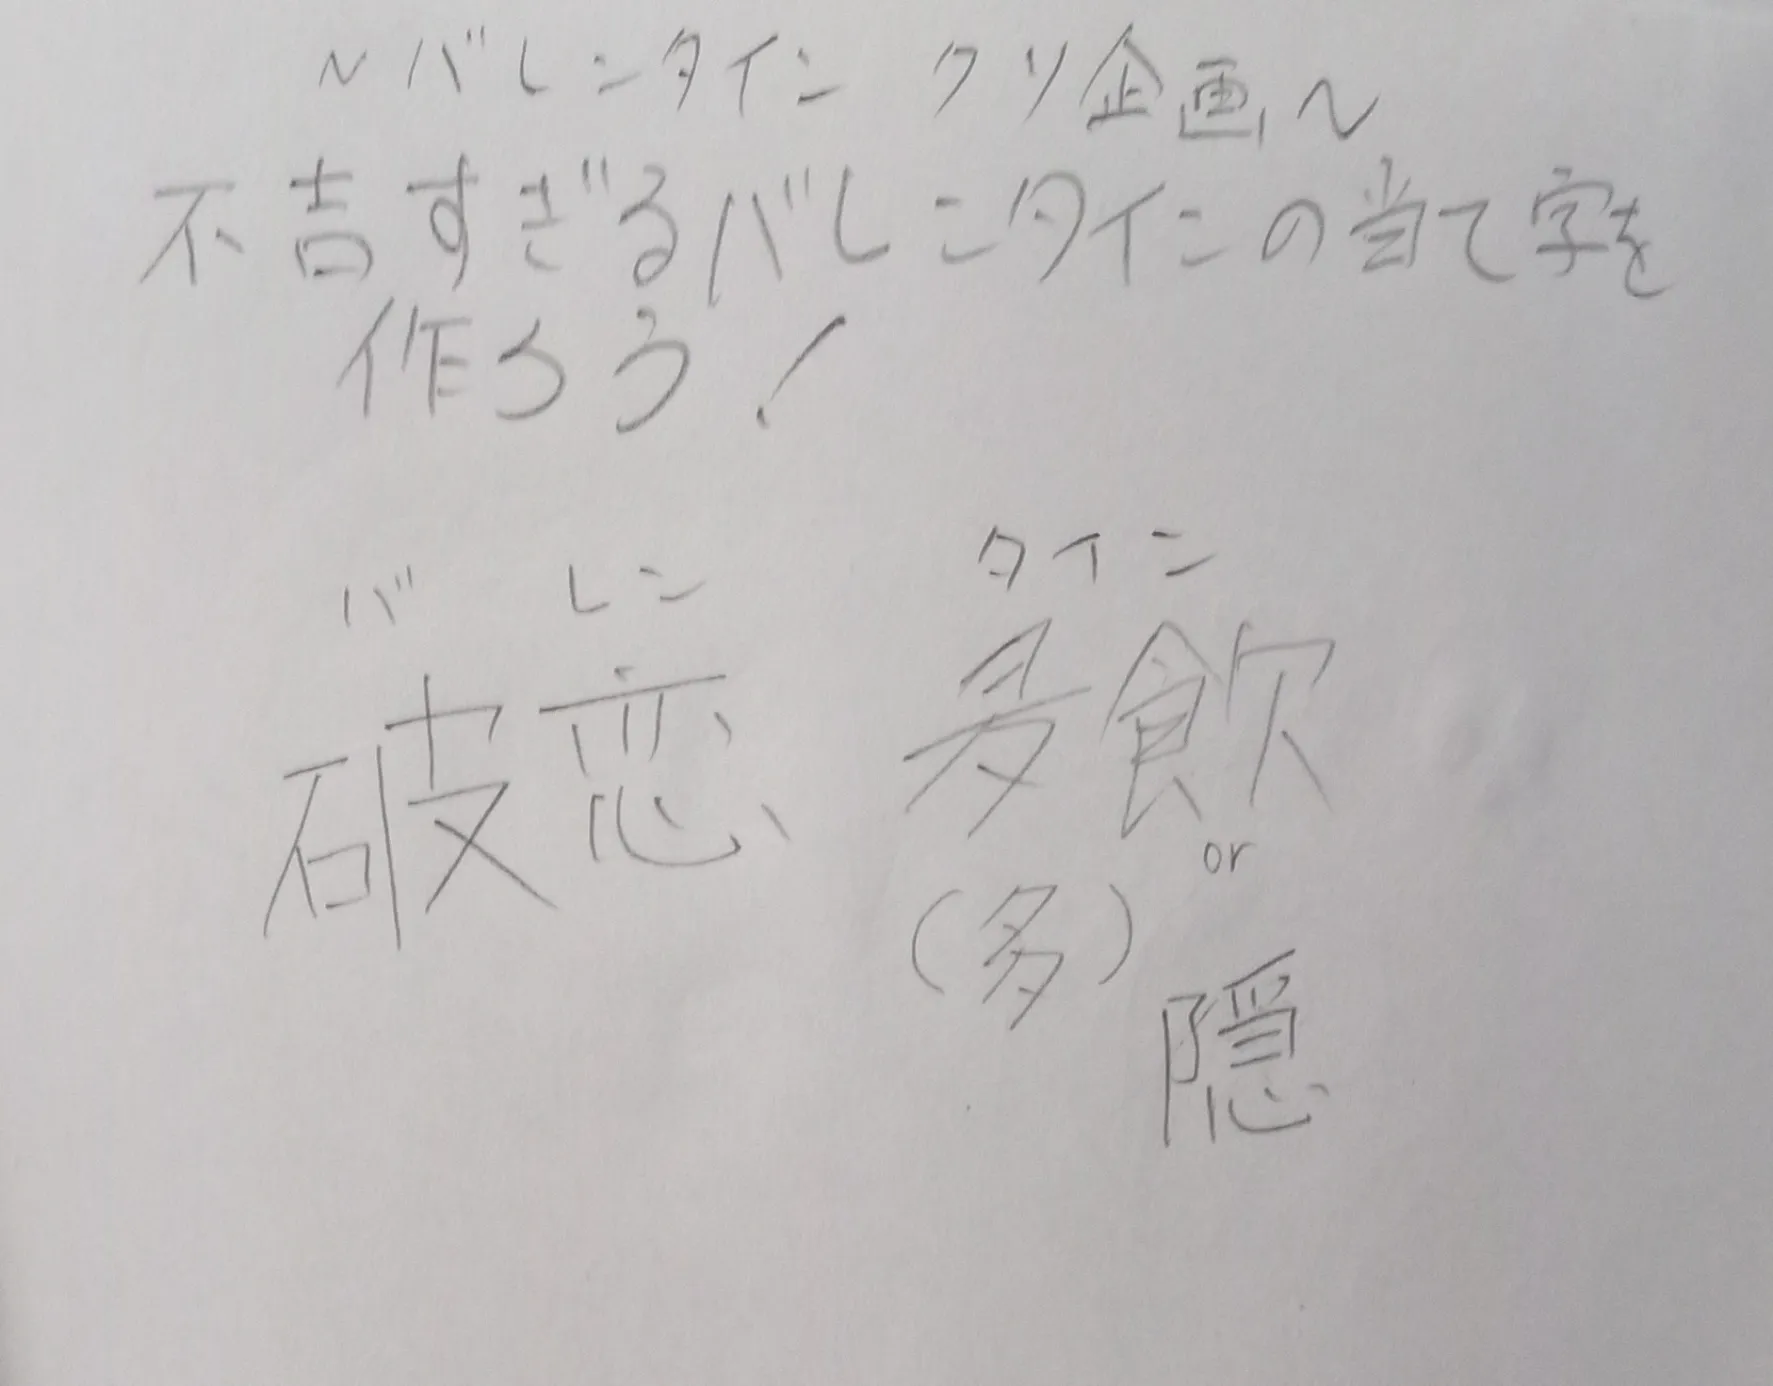 ~バレンタイン クソ企画~
不吉すぎるバレンタインの当て字を
作ろう!
バ レン タイン
破恋 多飲
or
(多)
隠